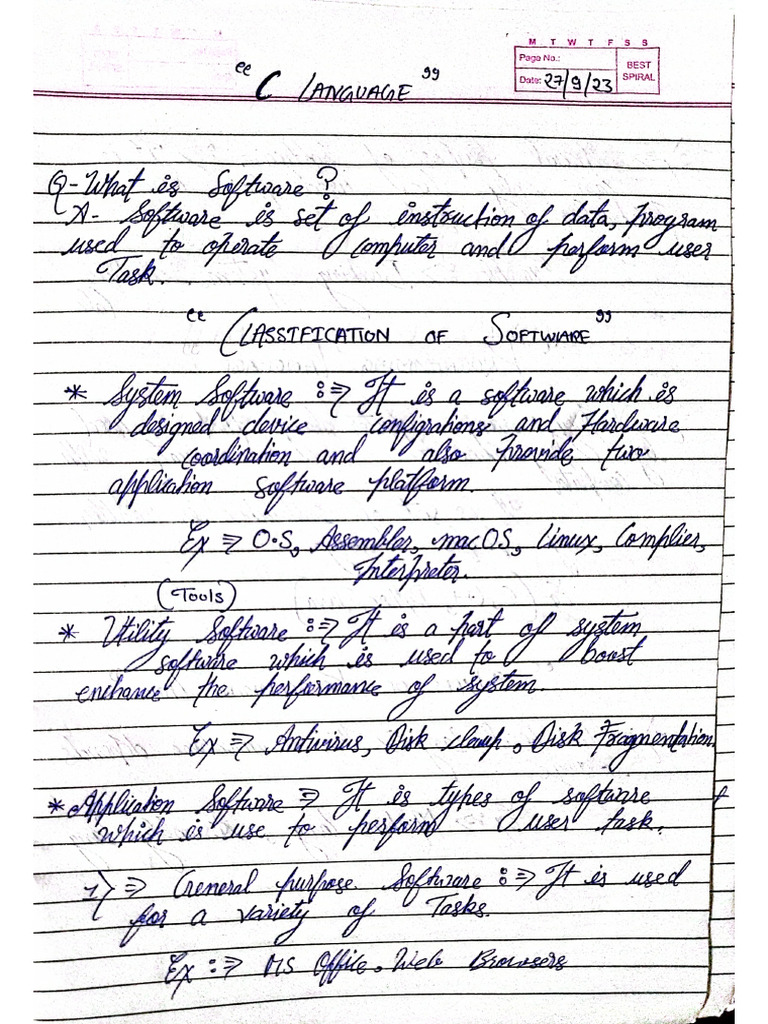 M T W T F S S
Page No.:
Date: 27/9/23
BEST SPIRAL
"C LANGUAGE"
Q- What is Software?
A- Software is set of instruction of data, program
used to operate computer and perform user
Task.
"CLASSIFICATION OF SOFTWARE"
* System Software :⇒ It is a software which is
designed device configrations and Hardware
coordination and also Provide two
application software platform.
Ex ⇒ O.S, Assembler, macOS, Linux, Complier,
Interpreter.
(Tools)
* Utility Software :⇒ It is a part of system
software which is used to boost
enchance the performance of system.
Ex ⇒ Antivirus, Disk clenup, Disk Fragmentation.
* Application Software ⇒ It is types of software
which is use to perform user task.
1) ⇒ General purpose Software :⇒ It is used
for a variety of Tasks.
Ex :⇒ MS Office, Web Browsers